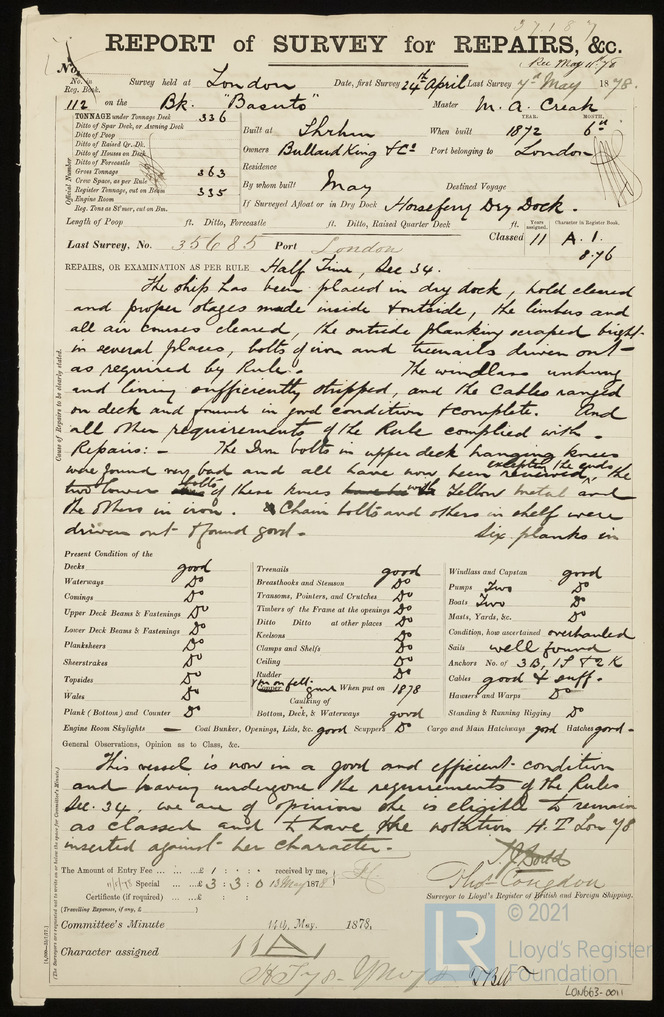 37187
REPORT of SURVEY for REPAIRS, &c.
Rec May 11th 78
No.
No. in Reg. Book. Survey held at London Date, first Survey 24th April Last Survey 7th May 1878.
112 on the Bk. "Basuto" Master M. A. Creak
TONNAGE under Tonnage Deck 336
Ditto of Spar Deck, or Awning Deck
Ditto of Poop
Ditto of Raised Qr. Dk.
Ditto of Houses on Deck
Ditto of Forecastle
Gross Tonnage 363
Crew Space, as per Rule
Register Tonnage, cut on Beam 335
Engine Room
Reg. Tons as St'mer, cut on Bm.
Official Number
Built at When built YEAR. 1872 MONTH. 6th
Owners Bullard King & Co Port belonging to London
Residence
By whom built May Destined Voyage
If Surveyed Afloat or in Dry Dock Horseferry Dry Dock.
Length of Poop ft. Ditto, Forecastle ft. Ditto, Raised Quarter Deck ft.
Last Survey, No. 35685 Port London Classed Years assigned. 11 Character in Register Book. A. 1.
8.76
REPAIRS, OR EXAMINATION AS PER RULE Half Time, Sec 34.
The ship has been placed in dry dock, hold cleared
and proper stages made inside & outside, the limbers and
all air courses cleared, the outside planking scraped bright
in several places, bolts of iron and treenails driven out
as required by Rule. The windlass unhung
and lining sufficiently stripped, and the Cables ranged
on deck and found in good condition & complete. And
all other requirements of the Rule complied with.
Repairs:- The Iron bolts in upper deck hanging knees
were found very bad and all have now been renewed, excepting the ends the
two lowers bolts of these knees with Yellow metal and
the others in iron. Chain bolts and others in shelf were
driven out & found good. Six planks in
Cause of Repairs to be clearly stated.
Present Condition of the
Decks good
Waterways Do
Comings Do
Upper Deck Beams & Fastenings Do
Lower Deck Beams & Fastenings Do
Planksheers Do
Sheerstrakes Do
Topsides Do
Wales Do
Plank (Bottom) and Counter Do
Treenails good
Breasthooks and Stemson Do
Transoms, Pointers, and Crutches Do
Timbers of the Frame at the openings Do
Ditto Ditto at other places Do
Keelsons Do
Clamps and Shelfs Do
Ceiling Do
Rudder Do
Copper When put on 1878
Caulking of
Bottom, Deck, & Waterways good
Windlass and Capstan good
Pumps Two Do
Boats Two Do
Masts, Yards, &c. Do
Condition, how ascertained overhauled
Sails well found
Anchors No. of 3B, 1S & 2K
Cables good & suff.
Hawsers and Warps Do
Standing & Running Rigging Do
Engine Room Skylights — Coal Bunker, Openings, Lids, &c. good Scuppers Do Cargo and Main Hatchways good Hatches good.
General Observations, Opinion as to Class, &c.
This vessel is now in a good and efficient condition
and having undergone the requirements of the Rules
Sec. 34, we are of opinion she is eligible to remain
as classed and to have the notation H.T Lon 78
inserted against her character.
The Amount of Entry Fee ... £ 1 : : received by me,
Special ... £ 3 : 3 : 0 13 May 1878
Certificate (if required) ... £ : :
(Travelling Expenses, if any, £ )
T. J. Dodd
Thos. Congdon
Surveyor to Lloyd's Register of British and Foreign Shipping.
Committee's Minute 14th May 1878.
Character assigned 11 A 1
H T 78
© 2021
LR
Lloyd's Register
Foundation
LON663-0011